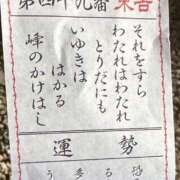 第四十九番 末吉
それをすら
わたればわたれ
とりだにも
いゆきは
はかる
峰のかけはし
運勢